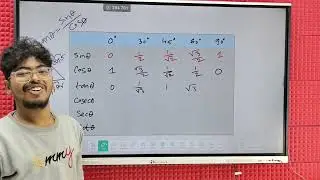 tanθ = sinθ/cosθ
0° 30° 45° 60° 90°
sinθ 0 1/2 1/√2 √3/2 1
cosθ 1 √3/2 1/√2 1/2 0
tanθ 0 1/√3 1 √3
cosecθ
secθ
cotθ